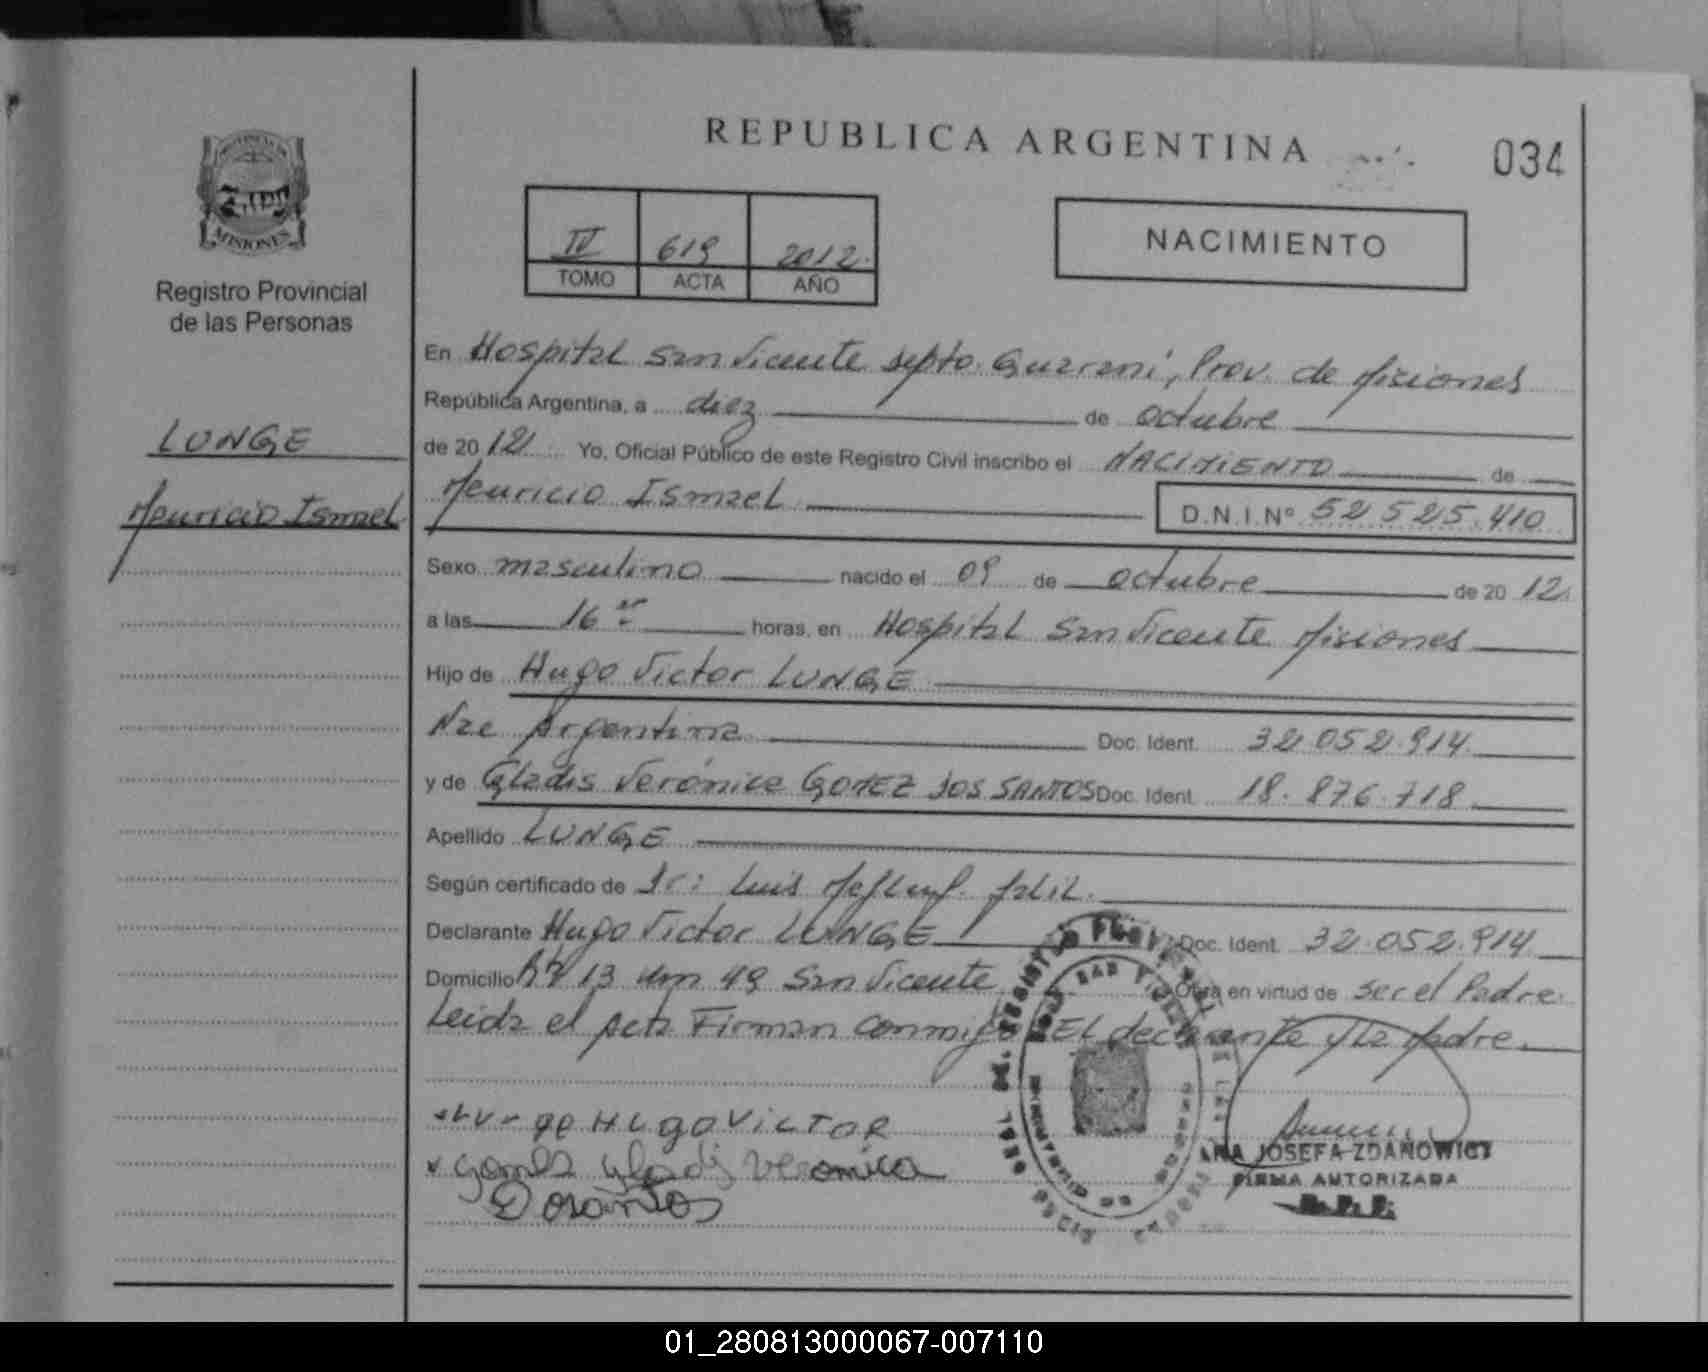 REPUBLICA ARGENTINA
034
PROVINCIA DE
MISIONES
Registro Provincial
de las Personas
IV 619 2012
TOMO ACTA AÑO
NACIMIENTO
LUNGE
Mauricio Ismael
En Hospital San Vicente Depto. Guarani, Prov. de Misiones
República Argentina, a diez de octubre
de 20 12 Yo, Oficial Público de este Registro Civil inscribo el NACIMIENTO de
Mauricio Ismael D.N.I.Nº 52 525.410
Sexo masculino nacido el 09 de octubre de 20 12
a las 16 horas, en Hospital San Vicente Misiones
Hijo de Hugo Victor LUNGE
Nac Argentina Doc. Ident. 32.052.914
y de Gladis Verónica GOMEZ DOS SANTOS Doc. Ident. 18.876.718
Apellido LUNGE
Según certificado de Dr: Luis
Declarante Hugo Victor LUNGE Doc. Ident. 32.052.914
Domicilio 13 km 49 San Vicente Obra en virtud de ser el Padre.
Leida el Acta Firman conmigo El declarante y La Madre.
HUGO VICTOR
gomez gladis Veronica
Dosantos
ANA JOSEFA ZDANOWICZ
FIRMA AUTORIZADA
01_280813000067-007110